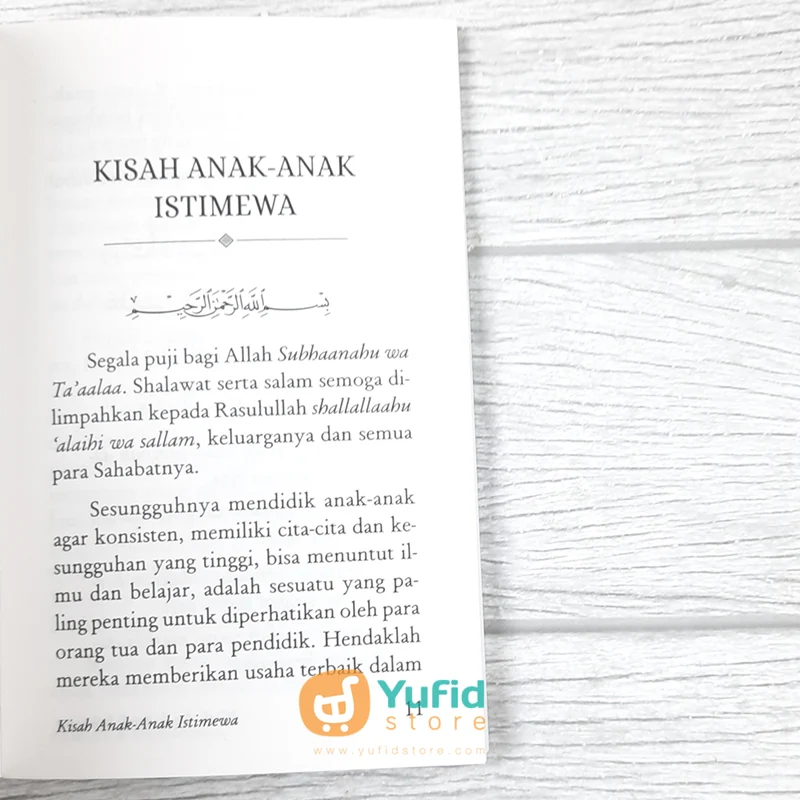 KISAH ANAK-ANAK
ISTIMEWA
بِسْمِ اللَّهِ الرَّحْمَٰنِ الرَّحِيمِ
Segala puji bagi Allah Subhaanahu wa
Ta'aalaa. Shalawat serta salam semoga di-
limpahkan kepada Rasulullah shallallaahu
'alaihi wa sallam, keluarganya dan semua
para Sahabatnya.
Sesungguhnya mendidik anak-anak
agar konsisten, memiliki cita-cita dan ke-
sungguhan yang tinggi, bisa menuntut il-
mu dan belajar, adalah sesuatu yang pa-
ling penting untuk diperhatikan oleh para
orang tua dan para pendidik. Hendaklah
mereka memberikan usaha terbaik dalam
Kisah Anak-Anak Istimewa
11
Yufid
store
www.yufidstore.com